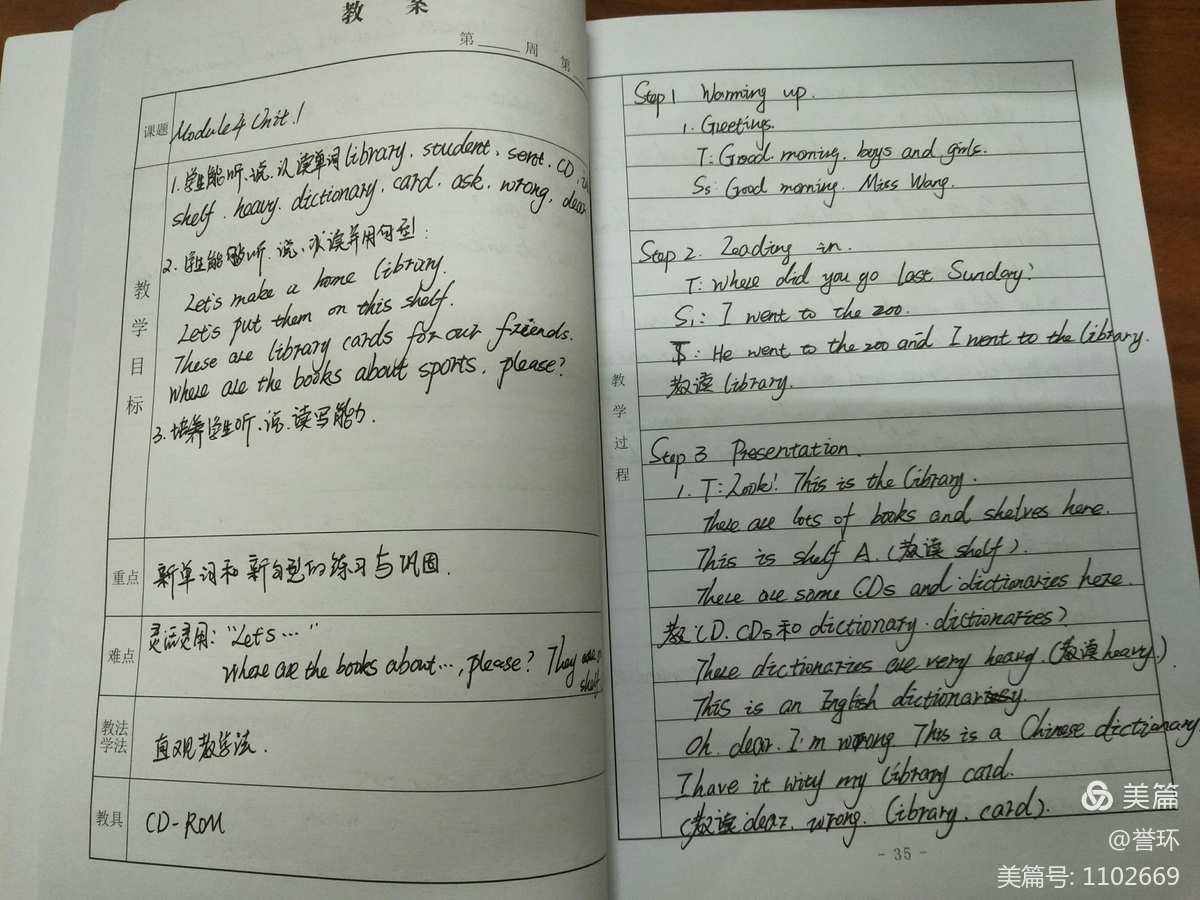 教 案
第 周 第
课题 Module 4 Unit 1
教学目标
1. 学生能听、说、认读单词 library、student、sent、CD、
shelf、heavy、dictionary、card、ask、wrong、dear
2. 学生能够听、说、认读并用句型:
Let's make a home library.
Let's put them on this shelf.
These are library cards for our friends.
Where are the books about sports, please?
3. 培养学生听、说、读写能力.
重点 新单词和新句型的练习与巩固.
难点 灵活灵用: "Let's…"
Where are the books about…, please? They are
shelf
教法学法 直观教学法.
教具 CD-ROM
教学过程
Step 1 Warming up.
1. Greetings.
T: Good morning, boys and girls.
Ss: Good morning. Miss Wang.
Step 2. Leading in.
T: Where did you go last Sunday?
S1: I went to the zoo.
T: He went to the zoo and I went to the library.
教读 library.
Step 3 Presentation.
1. T: Look! This is the library.
There are lots of books and shelves here.
This is shelf A. (教读 shelf).
There are some CDs and dictionaries here.
教 CD. CDs 和 dictionary. dictionaries)
These dictionaries are very heavy. (教读 heavy.)
This is an English dictionary.
Oh, dear. I'm wrong This is a Chinese dictionary.
I have it wity my library card.
(教读 dear. wrong. library. card).
- 35 -
美篇
@誉环
美篇号: 1102669